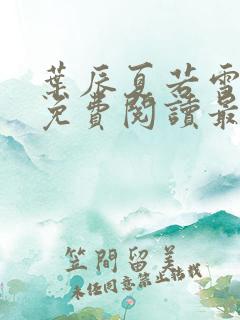 葉辰夏若雪
免費閱讀最
笠間留美
未经同意禁止转载